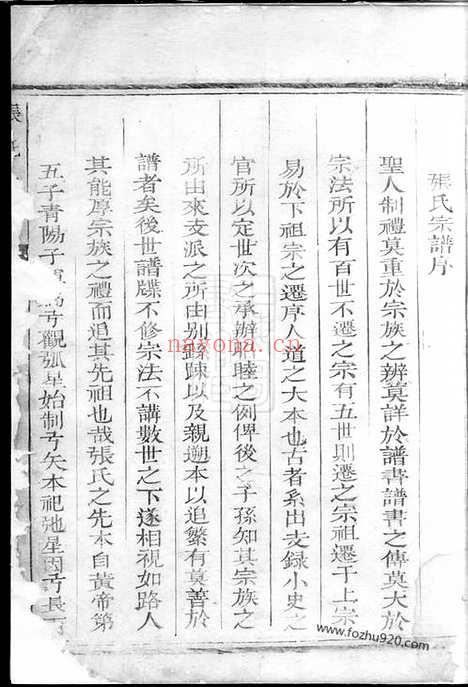 張氏宗譜序
聖人制禮莫重於宗族之辨莫詳於譜書譜書之傳莫大於
宗法所以有百世不遷之宗有五世則遷之宗祖遷于上宗
易於下祖宗之遷序人道之大本也古者系出支録小史之
官所以定世次之承辨昭睦之例俾後之子孫知其宗族之
所由來支派之所由别繇踈以及親遡本以追繁有莫善於
譜者矣後世譜牒不修宗法不講數世之下遂相視如路人
其能厚宗族之禮而追其先祖也哉張氏之先本自黄帝第
五子青陽子觀弧星始制弓矢本祀弧星因弓長
張
nayona.cn
www.fozhu920.com